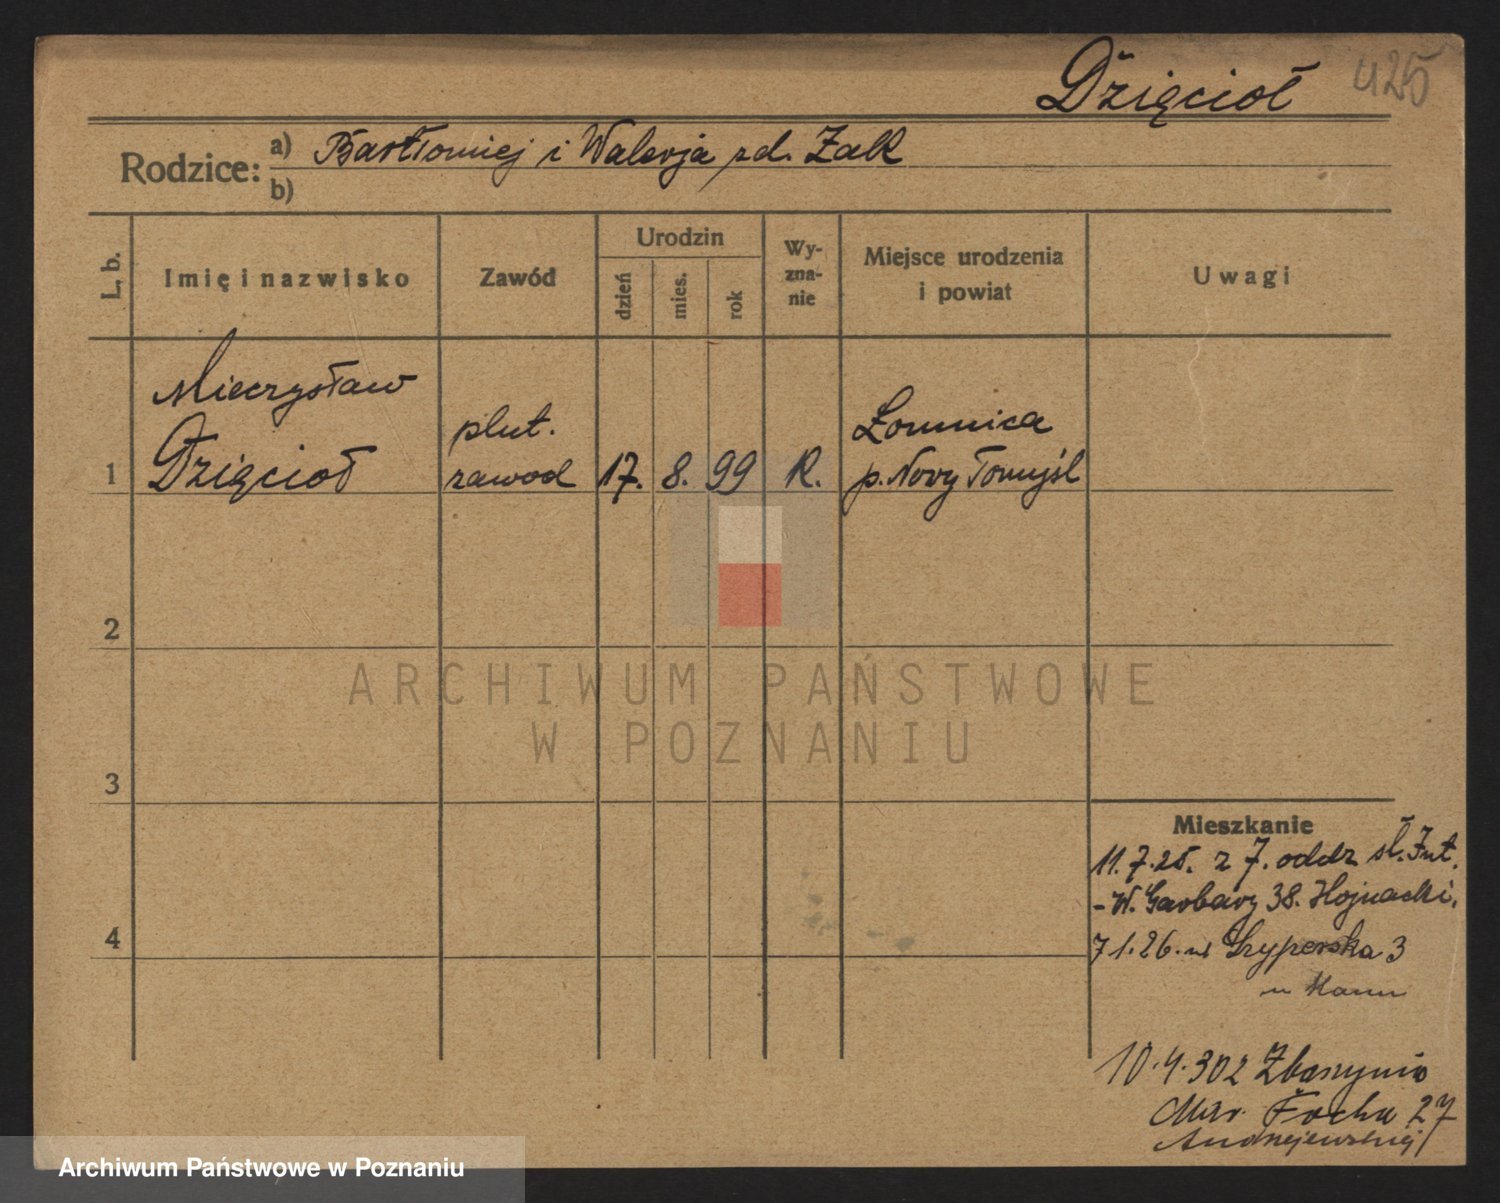 Dzięcioł 425
Rodzice: a) Bartłomiej i Walerja zd. Żak
b)
L. b.
Imię i nazwisko
Zawód
Urodzin
dzień
mies.
rok
Wy-
zna-
nie
Miejsce urodzenia
i powiat
Uwagi
Mieczysław
Dzięcioł
plut.
zawod
1
17. 8. 99 R.
Łomnica
p. Nowy Tomyśl
2
ARCHIWUM PAŃSTWOWE
W POZNANIU
3
Mieszkanie
11.7.25. z 7. oddz sł. Int.
- W. Garbary 38. Hojnacki.
4
7 1. 26. w Gryperska 3
u
10.4.30 z Zbąszynia
Mar. Focha 27
Andrzejewskiej
Archiwum Państwowe w Poznaniu